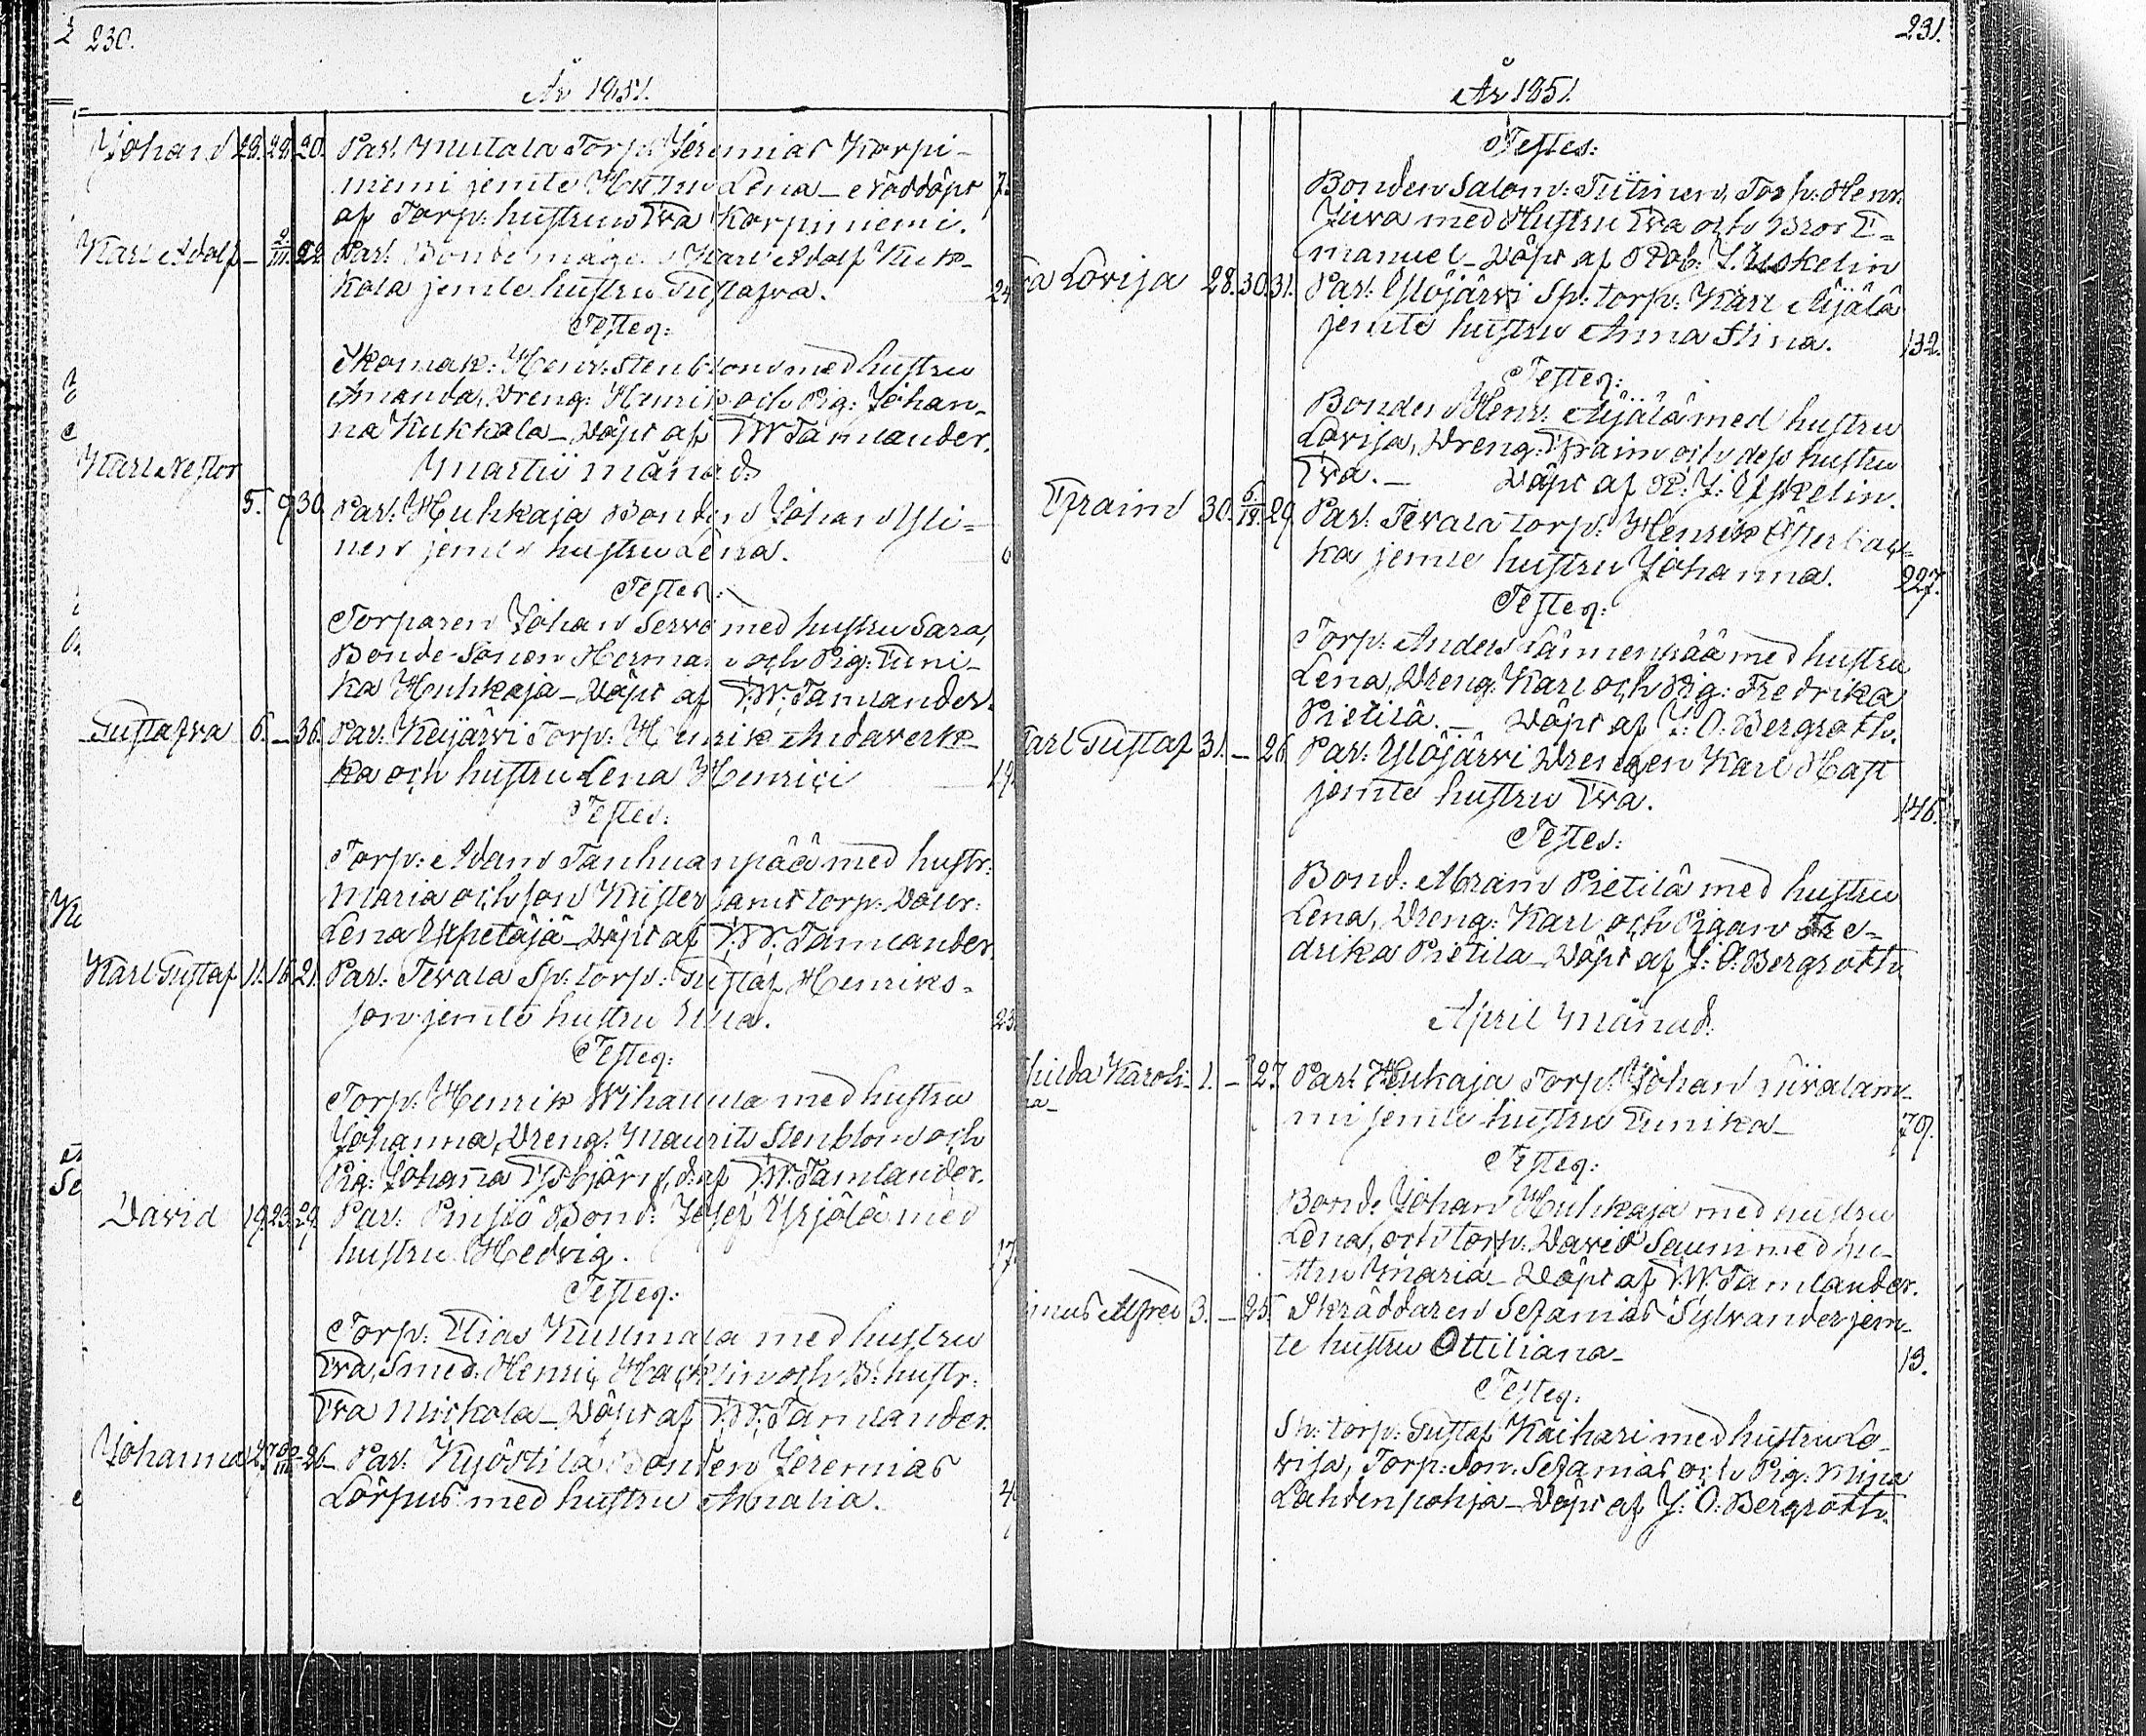 230.
År 1851.
Johan 28. 28. 20. Par. Mutala Torp: Jeremias Korpi-
niemi jemte Hustru Lena – nöddöpt 7
af Torp: hustrun Eva Korpiniemi.
Karl Adolf – 2/III. 22 Par. Bondemågen Karl Adolf Kuk-
kala jemte hustru Gustafva. 24
Testes:
Skomak: Henr: Stenblom med hustru
Amanda, Dreng: Henrik och Pig: Johan-
na Kukkala – Döpt af F.W. Tamlander.
Martii månad:
Karl Nestor
5. 9 30 Par. Huhkaja Bonden Johan Yli-
nen jemte hustru Lena. 6
Testes:
Torparen Johan Servo med hustru Sara,
Bonde-Sonen Herman och Pig: Euni-
ka Huhkaja – Döpt af F.W. Tamlander.
Gustafva 6. – 36. Par. Keijärvi Torp: Henrik
ka och hustru Lena Henrici 19
Testes:
Torp: Adam Tanhuanpää med hustr:
Maria och son Kuster samt torp: Dotter:
Lena – Döpt af F.W. Tamlander.
Karl Gustaf 11. 16 21. Par. Tevala Sp: torp: Gustaf Henriks-
son jemte hustru Ulla. 23
Testes:
Torp: Henrik Wihattula med hustru
Johanna, Dreng: Maurits Stenblom och
Pig: Johana Esbjörn, d: af F.W. Tamlander.
David 19 23 29. Par. Pinsiö Bond: Josef Yrjölä med
hustru Hedvig. 17
Testes:
Torp: Elias Kullmala med hustru
Eva, Smed: Henric Hacklin och B: hustr:
Eva Mickola – Döpt af F.W. Tamlander.
Johanna 27 26 – Par. Kyöstilä Bonden Jeremias
Lörpus med hustru Amalia. 4
231.
År 1851.
Testes:
Bonden Salom: Tiitinen, Torp: Henr.
Jiura med Hustru Eva och Bror E-
manuel – Döpt af Rob: J. Uskelin
Lovisa 28. 30. 31. Par. Ylöjärvi Sp: torp: Karl Äijälä
jemte hustru Anna Stina. 132.
Testes:
Bonden Henr: Äijälä med hustru
Lovisa, Dreng: Efraim och dess hustru
Eva. – Döpt af R: J: Uskelin.
Efraim 30. 5/ 29. Par. Tevala torp: Henrik Österbac-
ka jemte hustru Johanna. 227.
Testes:
Torp: Anders med hustru
Lena, Dreng: Karl och Pig: Fredrika
Pietilä. – Döpt af J: O: Bergroth.
Karl Gustaf 31. – 26. Par. Ylöjärvi Drengen Karl Hast
jemte hustru Eva. 146.
Testes:
Bond: Abram Pietilä med hustru
Lena, Dreng: Karl och Pigan Fre-
drika Pietilä – Döpt af J: O: Bergroth
April Månad:
hilda Karoli- 1. – 27. Par. Huhkaja Torp: Johan Siivalam-
na – mi jemte hustru Eunika – 79.
Testes:
Bond: Johan Huhkaja med hustru
Lena, och torp: David Saum med hu-
stru Maria – Döpt af F.W. Tamlander.
Alfred 3. – 25. Skräddaren Sefanias Sylvander jem-
te hustru Ottiliana – 13.
Testes:
Sp: torp: Gustaf Kaihari med hustru Lo-
visa, Torp: Son: Sefanias och Pig: Mina
Lahdenpohja – Döpt af J: O: Bergroth.